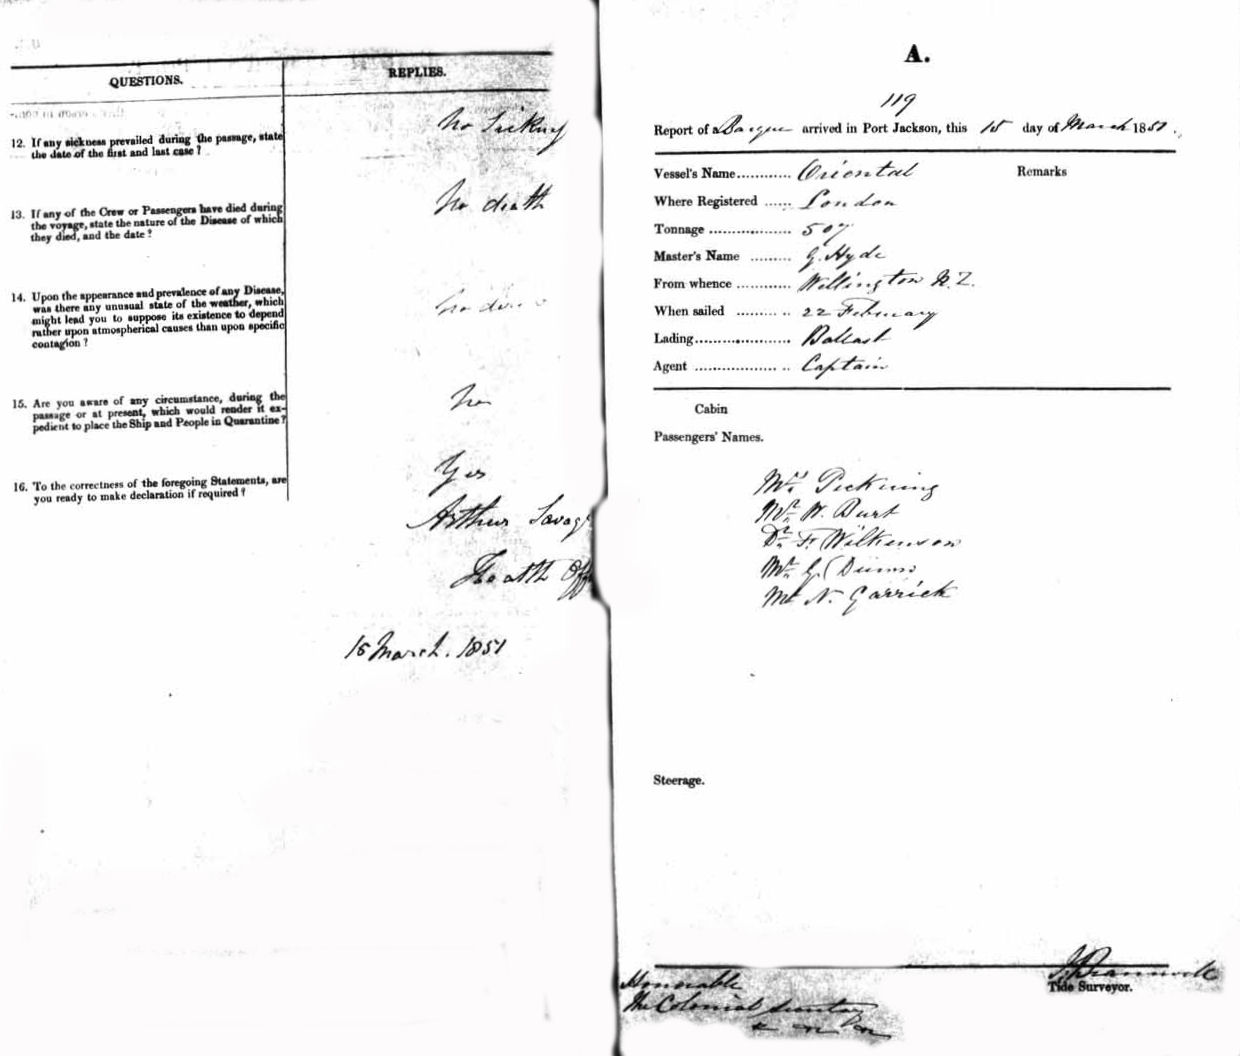 QUESTIONS.
REPLIES.
12. If any sickness prevailed during the passage, state
the date of the first and last case?
No Sickness
13. If any of the Crew or Passengers have died during
the voyage, state the nature of the Disease of which
they died, and the date?
No death
14. Upon the appearance and prevalence of any Disease,
was there any unusual state of the weather, which
might lead you to suppose its existence to depend
rather upon atmospherical causes than upon specific
contagion?
No
15. Are you aware of any circumstance, during the
passage or at present, which would render it ex-
pedient to place the Ship and People in Quarantine?
No
16. To the correctness of the foregoing Statements, are
you ready to make declaration if required?
Yes
Arthur Savag
Health Off
15 March. 1851
A.
119
Report of a Barque arrived in Port Jackson, this 15 day of March 1851.
Vessel's Name............ Oriental Remarks
Where Registered ...... London
Tonnage .................. 507
Master's Name ......... G. Hyde
From whence ............ Wellington N. Z.
When sailed ............ 22 February
Lading..................... Ballast
Agent ..................... Captain
Cabin
Passengers' Names.
Pickning
Mr. W. Burt
Dr. F. Wilkinson
Mr. G. Dunn
Mr N. Garrick
Steerage.
Tide Surveyor.
Honorable
The Colonial Secretary